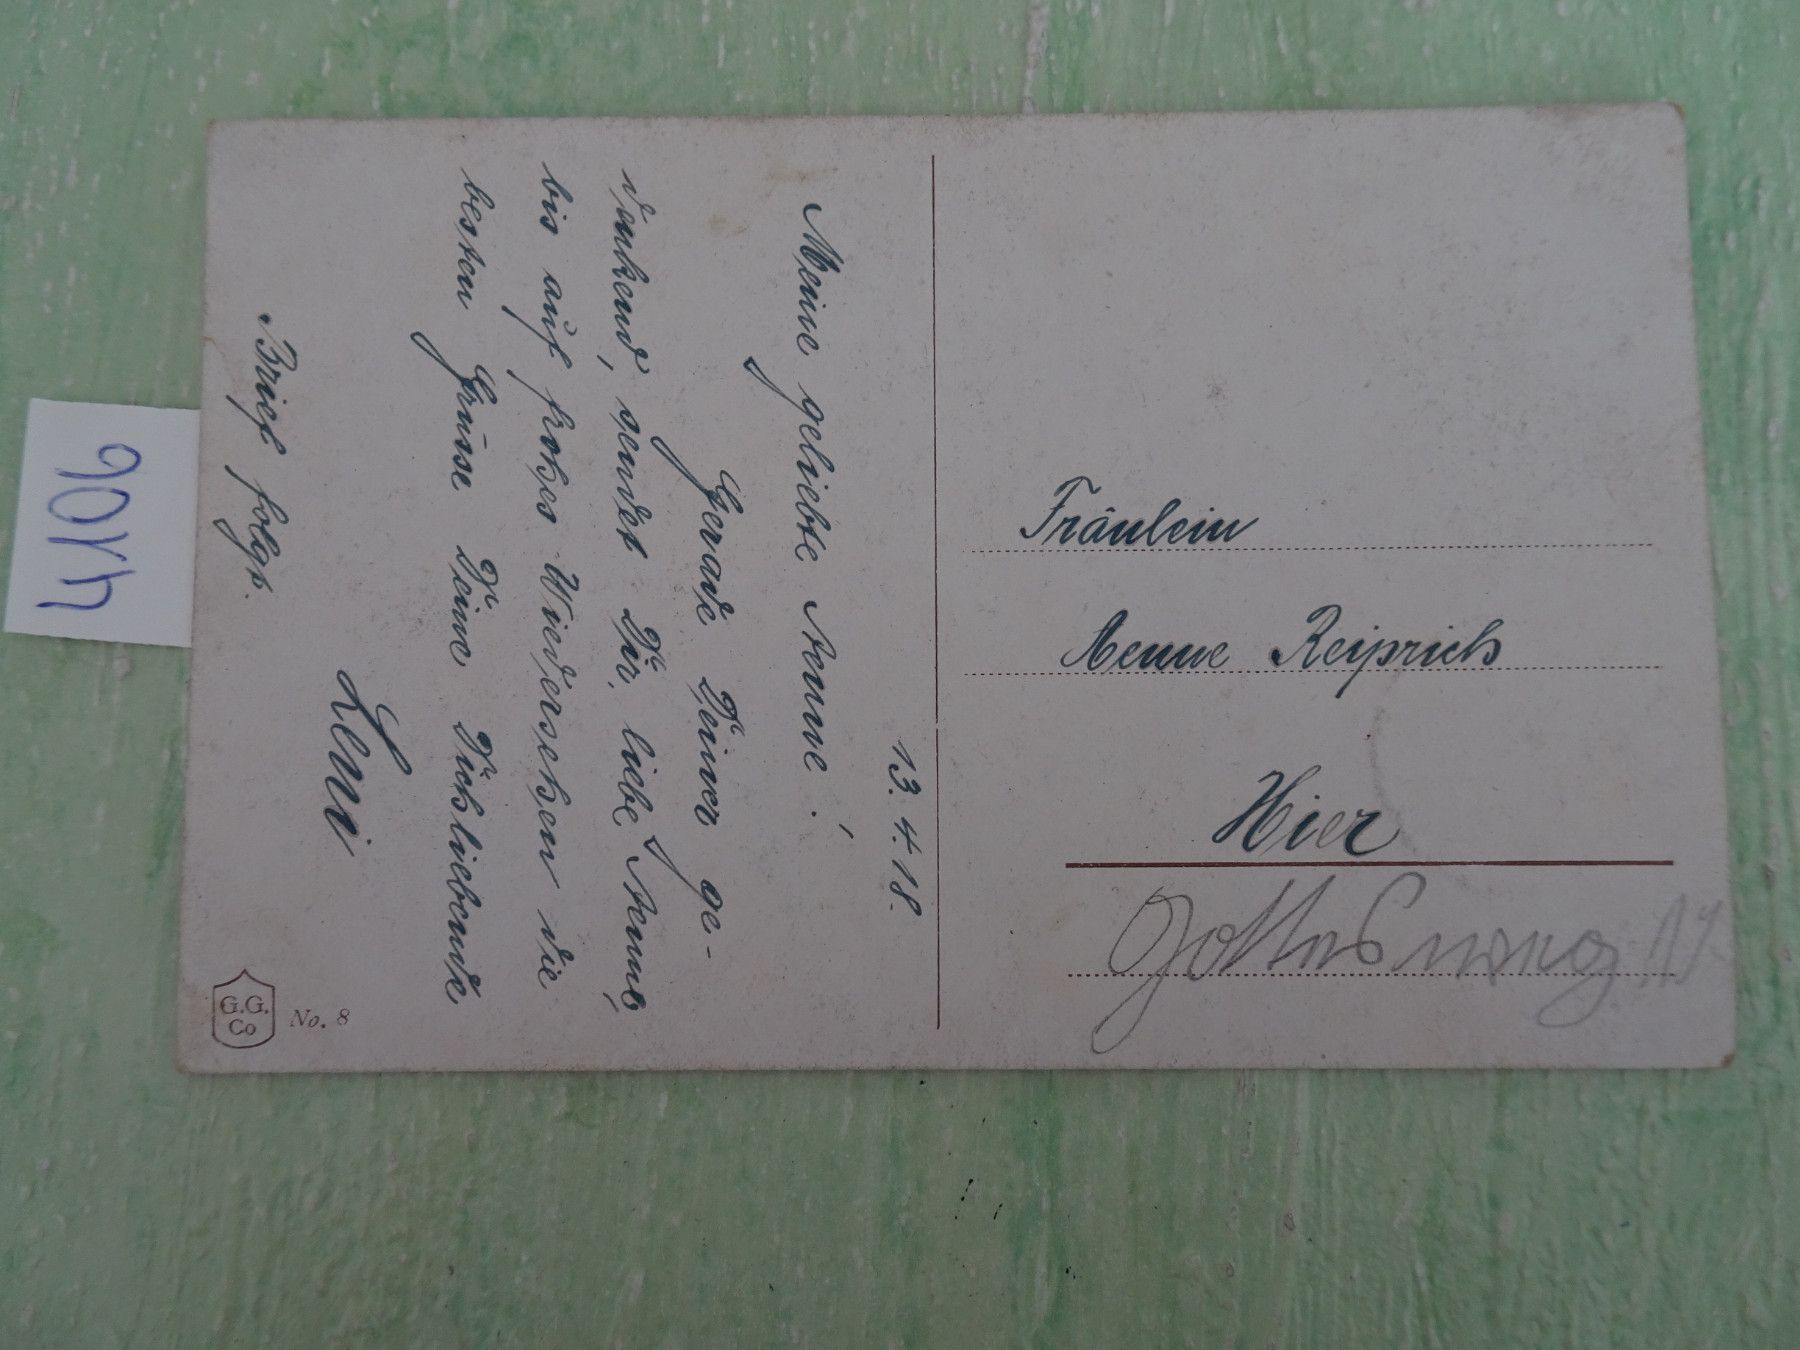 13. 4. 18.
Meine geliebte Aenne!
Gerade Deiner ge-
denkend, sendet Dir, liebe Aenne,
bis auf frohes Wiedersehen die
besten Grüsse Deine Dich liebende
Leni
Brief folgt.
Fräulein
Aenne Reiprich
Hier
G.G.
Co
No. 8
4106